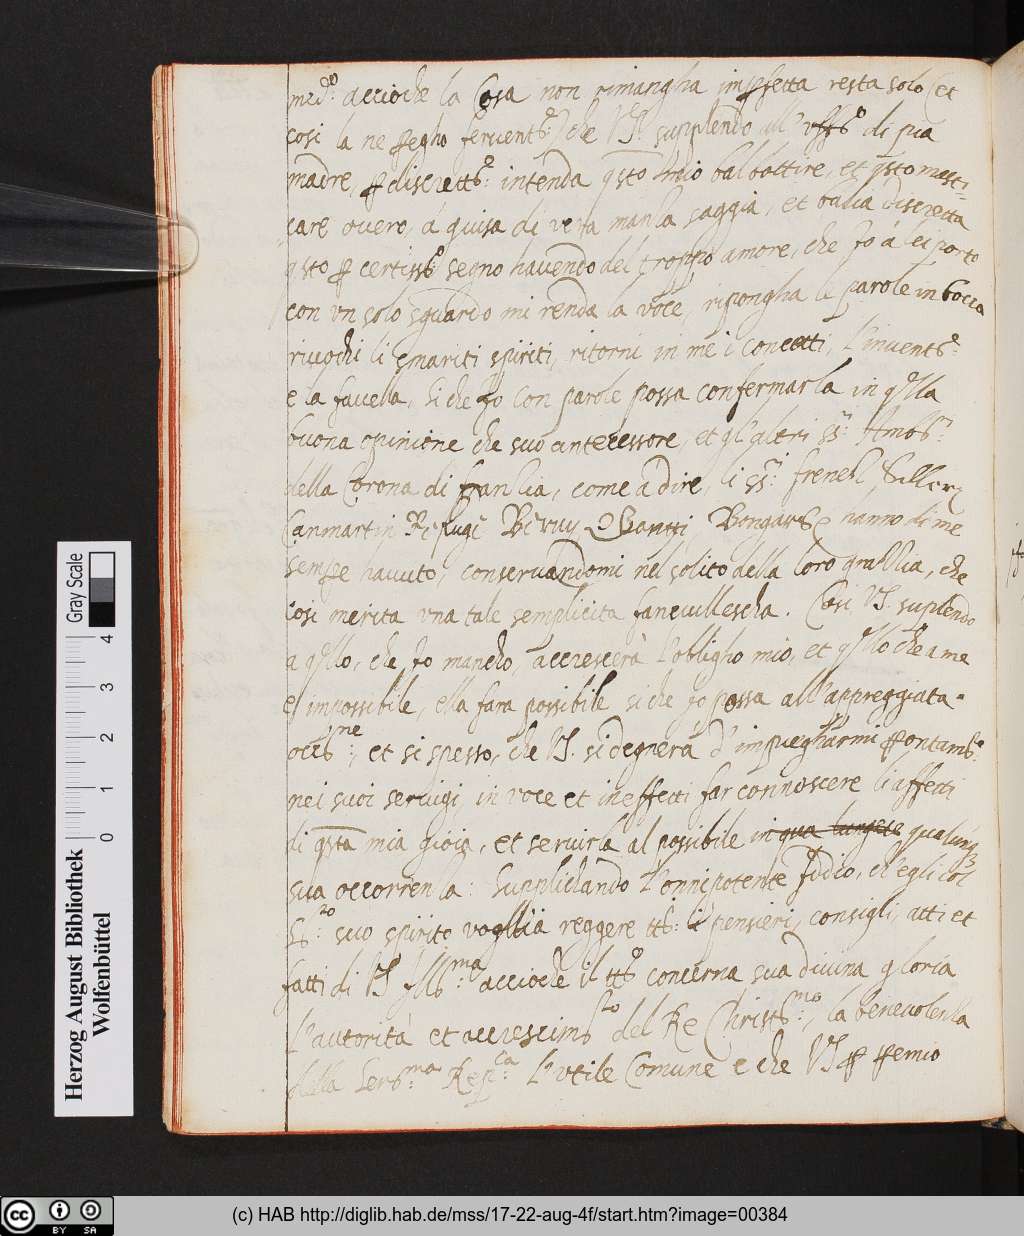 acciochè la Cosa non rimangha imperfetta resta solo (et
cosi la ne pregho ferventte) che VS. supplendo all' uffo di pia
madre, p discretts: intenda qsto mio balbottire, et qsto masti-
care overo, à guisa di vera manla saggia, et balia discretta
qsto p certisso segno havendo del troppo amore, che Io à lei porto
con un solo sguardo mi renda la voce, ripongha le parole in bocca
riuochi li smariti spiriti, ritorni in me i concetti, l'invents:
e la favella, si che Io con parole possa confermarla in qlla
buona opinione che suo antecessore, et gl'altri SSri Ambri:
della Corona di franlia, come à dire, li SSri frenesl Silleri
Canmartin Refuge Vervy, Bongars hanno di me
sempre havuto, conservandomi nel solito della loro grablia, che
cosi merita una tale semplicita fanciullescha. Cosi VS. suplendo
a qllo, che Io mancho, accrescerà l'obligho mio, et qllo che a me
è impossibile, ella fara possibile si che Io possa all'appreggiata
occne: et si spesso, che VS. si degnerà d'impiegharmi prontamte
nei suoi servigi, in voce et in effetti far connoscere li affetti
di qsta mia gioia, et servirla al possibile in qua lungete qualunqz
sua occorrenla: Supplichando l'onnipotente Iddio, ch'egli col
Sto: suo spirito voglia reggere tti: li pensieri, consigli, atti et
fatti di VS Illma: acciochè il tto concerna sua divina gloria
l'autorità et accrescimto del Re Christmo:, la benevolenla
della Serma: Repca: l'utile Comune e che VS p premio
Gray Scale
0 1 2 3 4
Herzog August Bibliothek
Wolfenbüttel
cc BY SA
(c) HAB http://diglib.hab.de/mss/17-22-aug-4f/start.htm?image=00384